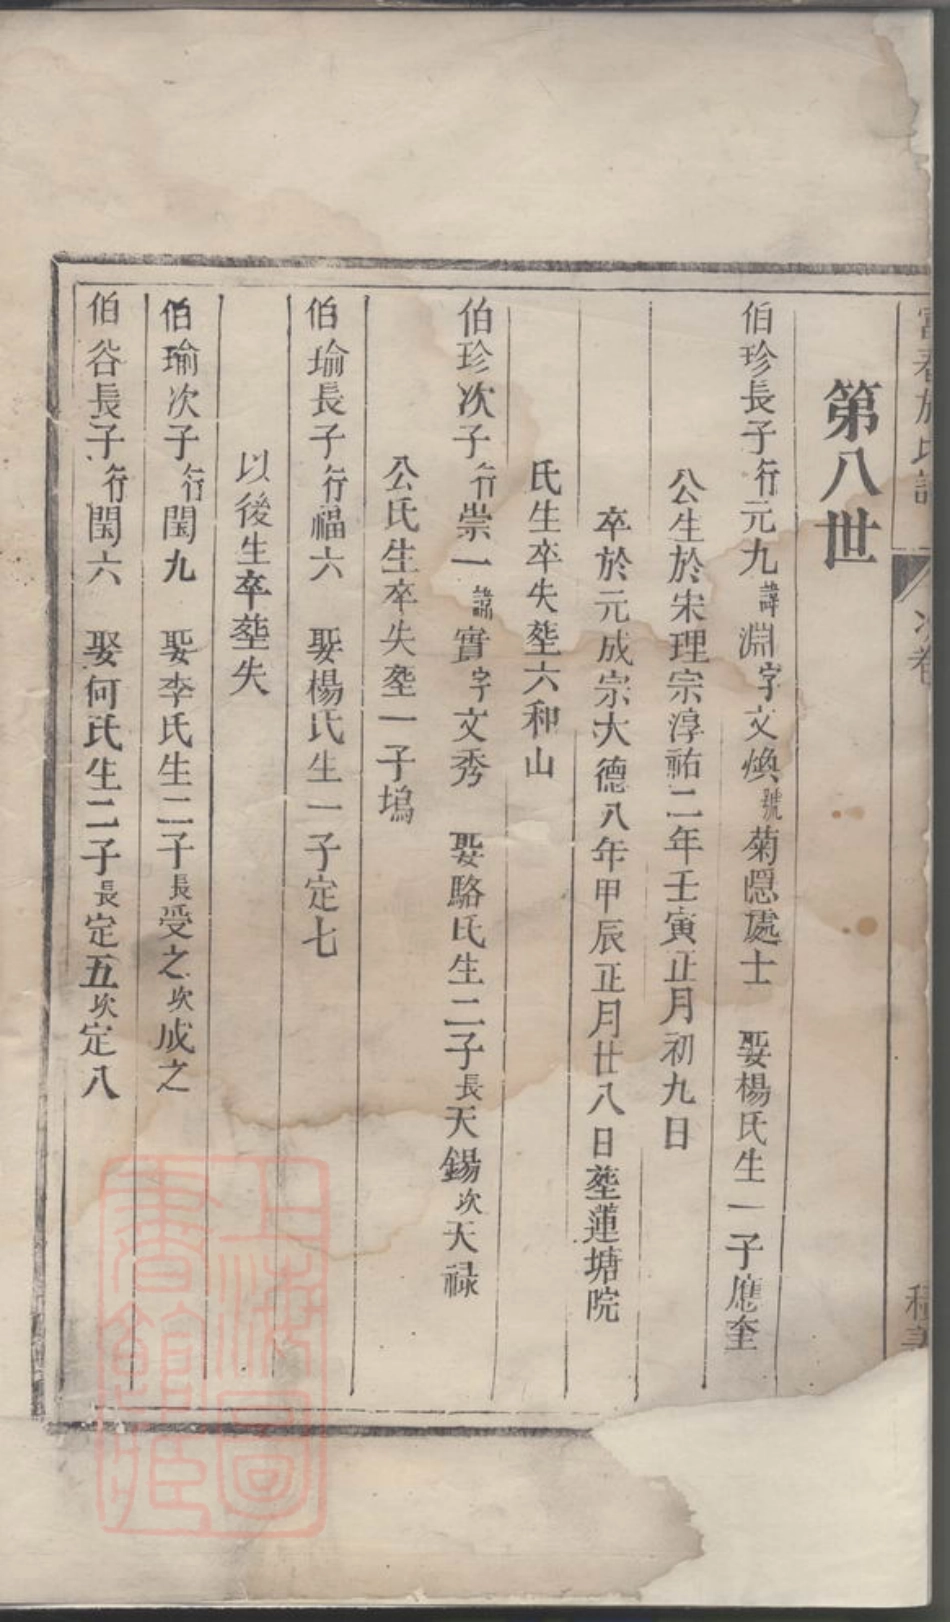 富春於氏譜 次卷
第八世
伯珍長子行元九諱淵字文煥號菊隱處士 娶楊氏生一子應奎
公生於宋理宗淳祐二年壬寅正月初九日
卒於元成宗大德八年甲辰正月廿八日塟蓮塘院
氏生卒失塟六和山
伯珍次子行崇一諱實字文秀 娶駱氏生二子長天錫次天禄
公氏生卒失塟一子塢
伯瑜長子行福六 娶楊氏生一子定七
以後生卒塟失
伯瑜次子行閏九 娶李氏生二子長受之次成之
伯谷長子行閏六 娶何氏生二子長定五次定八
上海圖
書館藏